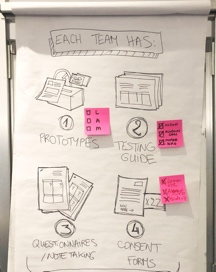 EACH TEAM HAS:
1
PROTOTYPES
L
A
M
2
TESTING
GUIDE
3
QUESTIONNAIRES
/NOTE TAKING
X22
4
CONSENT
FORMS